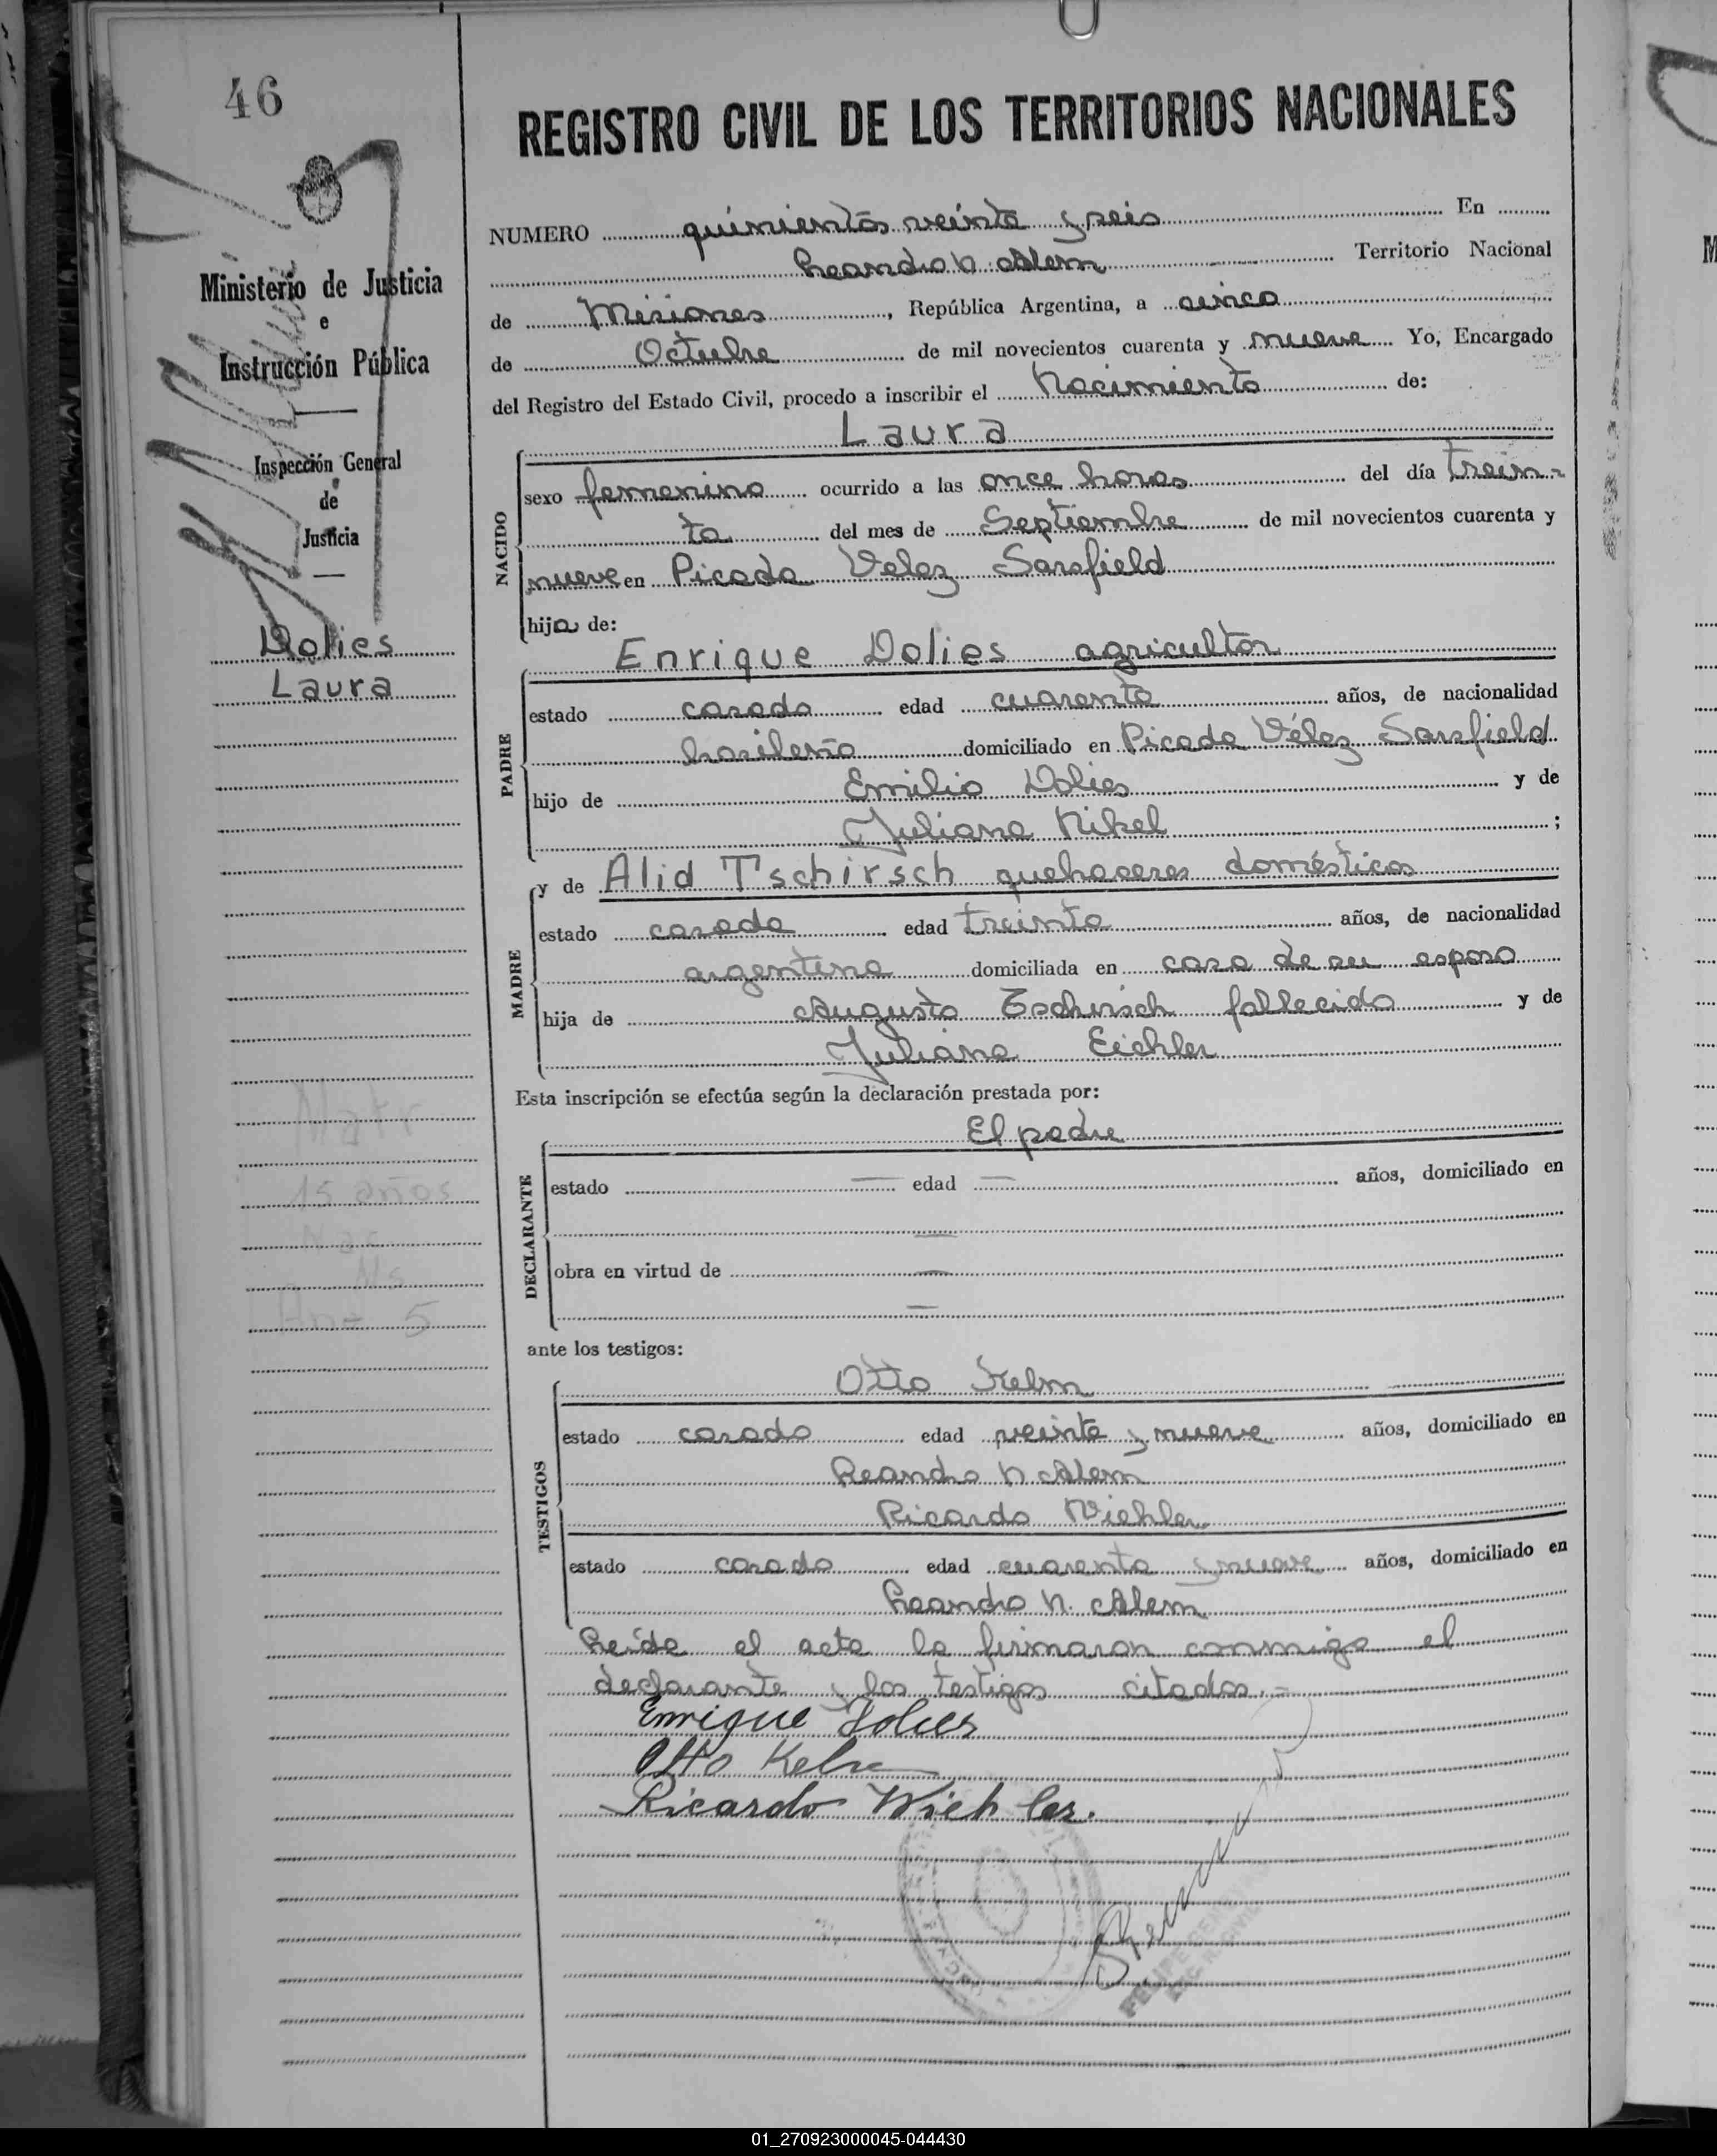 46
REGISTRO CIVIL DE LOS TERRITORIOS NACIONALES
Ministerio de Justicia
e
Instrucción Pública
Inspección General
de
Justicia
Dolies
Laura
NUMERO quinientos veinte y seis En
Leandro N. Alem Territorio Nacional
de Misiones, República Argentina, a cinco
de Octubre de mil novecientos cuarenta y nueve Yo, Encargado
del Registro del Estado Civil, procedo a inscribir el Nacimiento de:
Laura
NACIDO
sexo femenino ocurrido a las once horas del día trein-
ta del mes de Septiembre de mil novecientos cuarenta y
nueve en Picada Velez Sarsfield
hija de:
Enrique Dolies agricultor
PADRE
estado casado edad cuarenta años, de nacionalidad
brasileña domiciliado en Picada Vélez Sarsfield
hijo de Emilio Dolies y de
Juliana Nikel ;
MADRE
y de Alid Tschirsch quehaceres domésticos
estado casada edad treinta años, de nacionalidad
argentina domiciliada en casa de su esposo
hija de Augusto Tschirsch fallecido y de
Juliana Eichler
Esta inscripción se efectúa según la declaración prestada por:
El padre
DECLARANTE
estado — edad — años, domiciliado en
—
obra en virtud de —
—
ante los testigos:
Otto Kelm
TESTIGOS
estado casado edad veinte y nueve años, domiciliado en
Leandro N. Alem
Ricardo Wiehler
estado casado edad cuarenta y nueve años, domiciliado en
Leandro N. Alem
Leída el acta la firmaron conmigo el
declarante y los testigos citados.-
Enrique Dolies
Otto Kelm
Ricardo Wiehler.
15 años
5
01_270923000045-044430